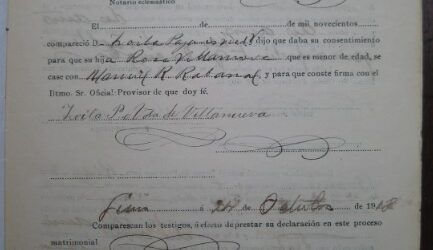 Notario eclesiástico
El ........ de ........ de mil novecientos
compareció D. Zoila Pajares vd V. dijo que daba su consentimiento
para que su hija Rosa Villanueva que es menor de edad, se
case con Manuel R. Rabanal y para que conste firma con el
Iltmo. Sr. Oficial Provisor de que doy fé.
Zoila P. Vda de Villanueva
Lima á 24 de Octubre de 19
Comparescan los testigos, á efecto de prestar su declaración en este proceso
matrimonial